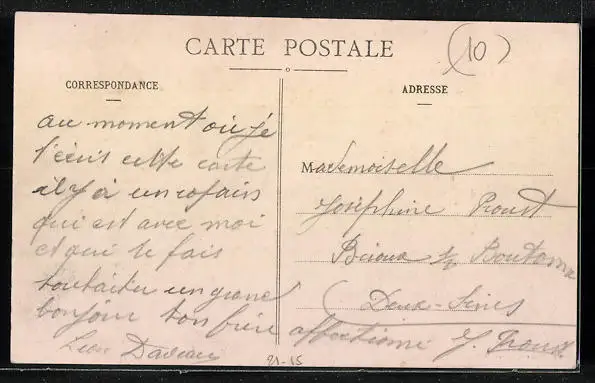 CARTE POSTALE
(10)
CORRESPONDANCE
ADRESSE
au moment où je
t'écris cette carte
il y a un cofain
qui est avec moi
et qui te fais
souhaiter un grand
bonjour ton frère affectionné J. Proust
Léon
Mademoiselle
Joséphine Proust
Brioux s/ Boutonne
Deux-Sèvres
21-15